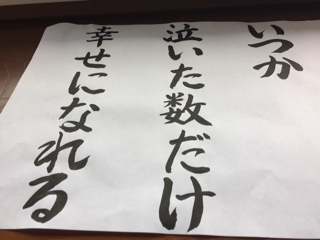 いつか
泣いた数だけ
幸せになれる